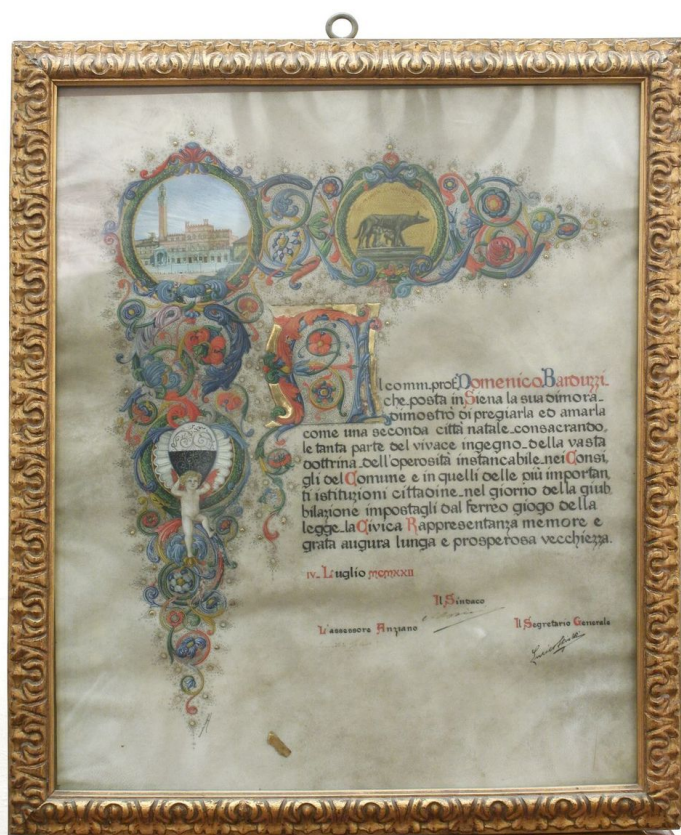 Al comm. prof. Domenico Barduzzi.
che, posta in Siena la sua dimora_
dimostrò di pregiarla ed amarla
come una seconda città natale_consacrando,
le tanta parte del vivace ingegno_della vasta
dottrina_dell'operosità instancabile_nei Consi,
gli del Comune e in quelli delle più importan,
ti istituzioni cittadine_nel giorno della giub,
bilazione impostagli dal ferreo giogo della
legge_la Civica Rappresentanza memore e
grata augura lunga e prosperosa vecchiezza.
IV_Luglio MCMXXII
Il Sindaco
L'assessore Anziano
Il Segretario Generale